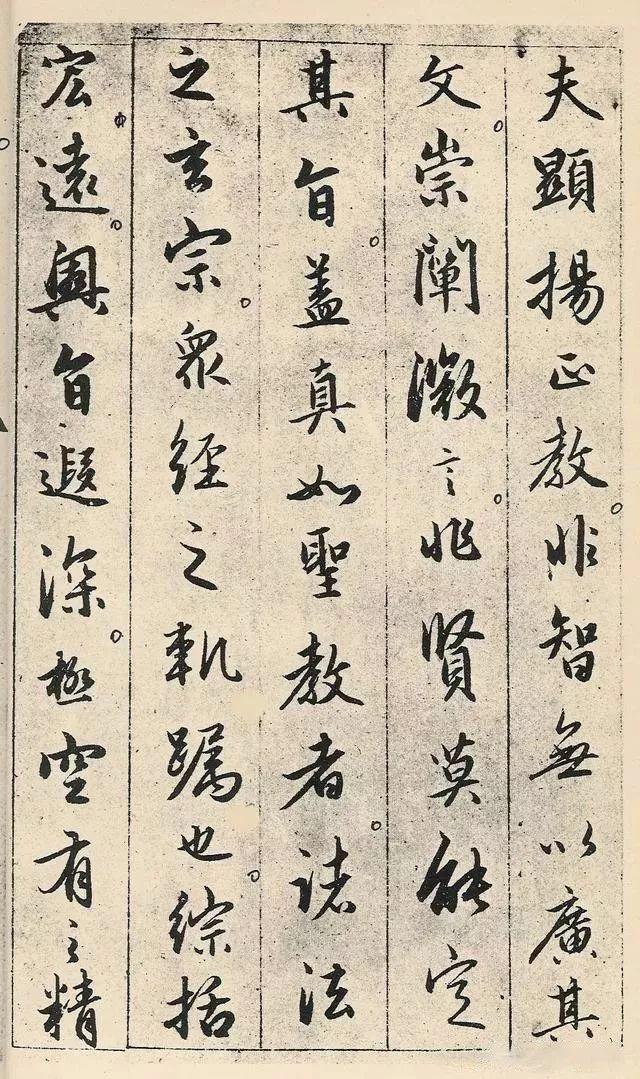 夫顯揚正教非智無以廣其
文崇闡微言非賢莫能定
其旨蓋真如聖教者諸法
之玄宗眾經之軌躅也綜括
宏遠奧旨遐深極空有之精